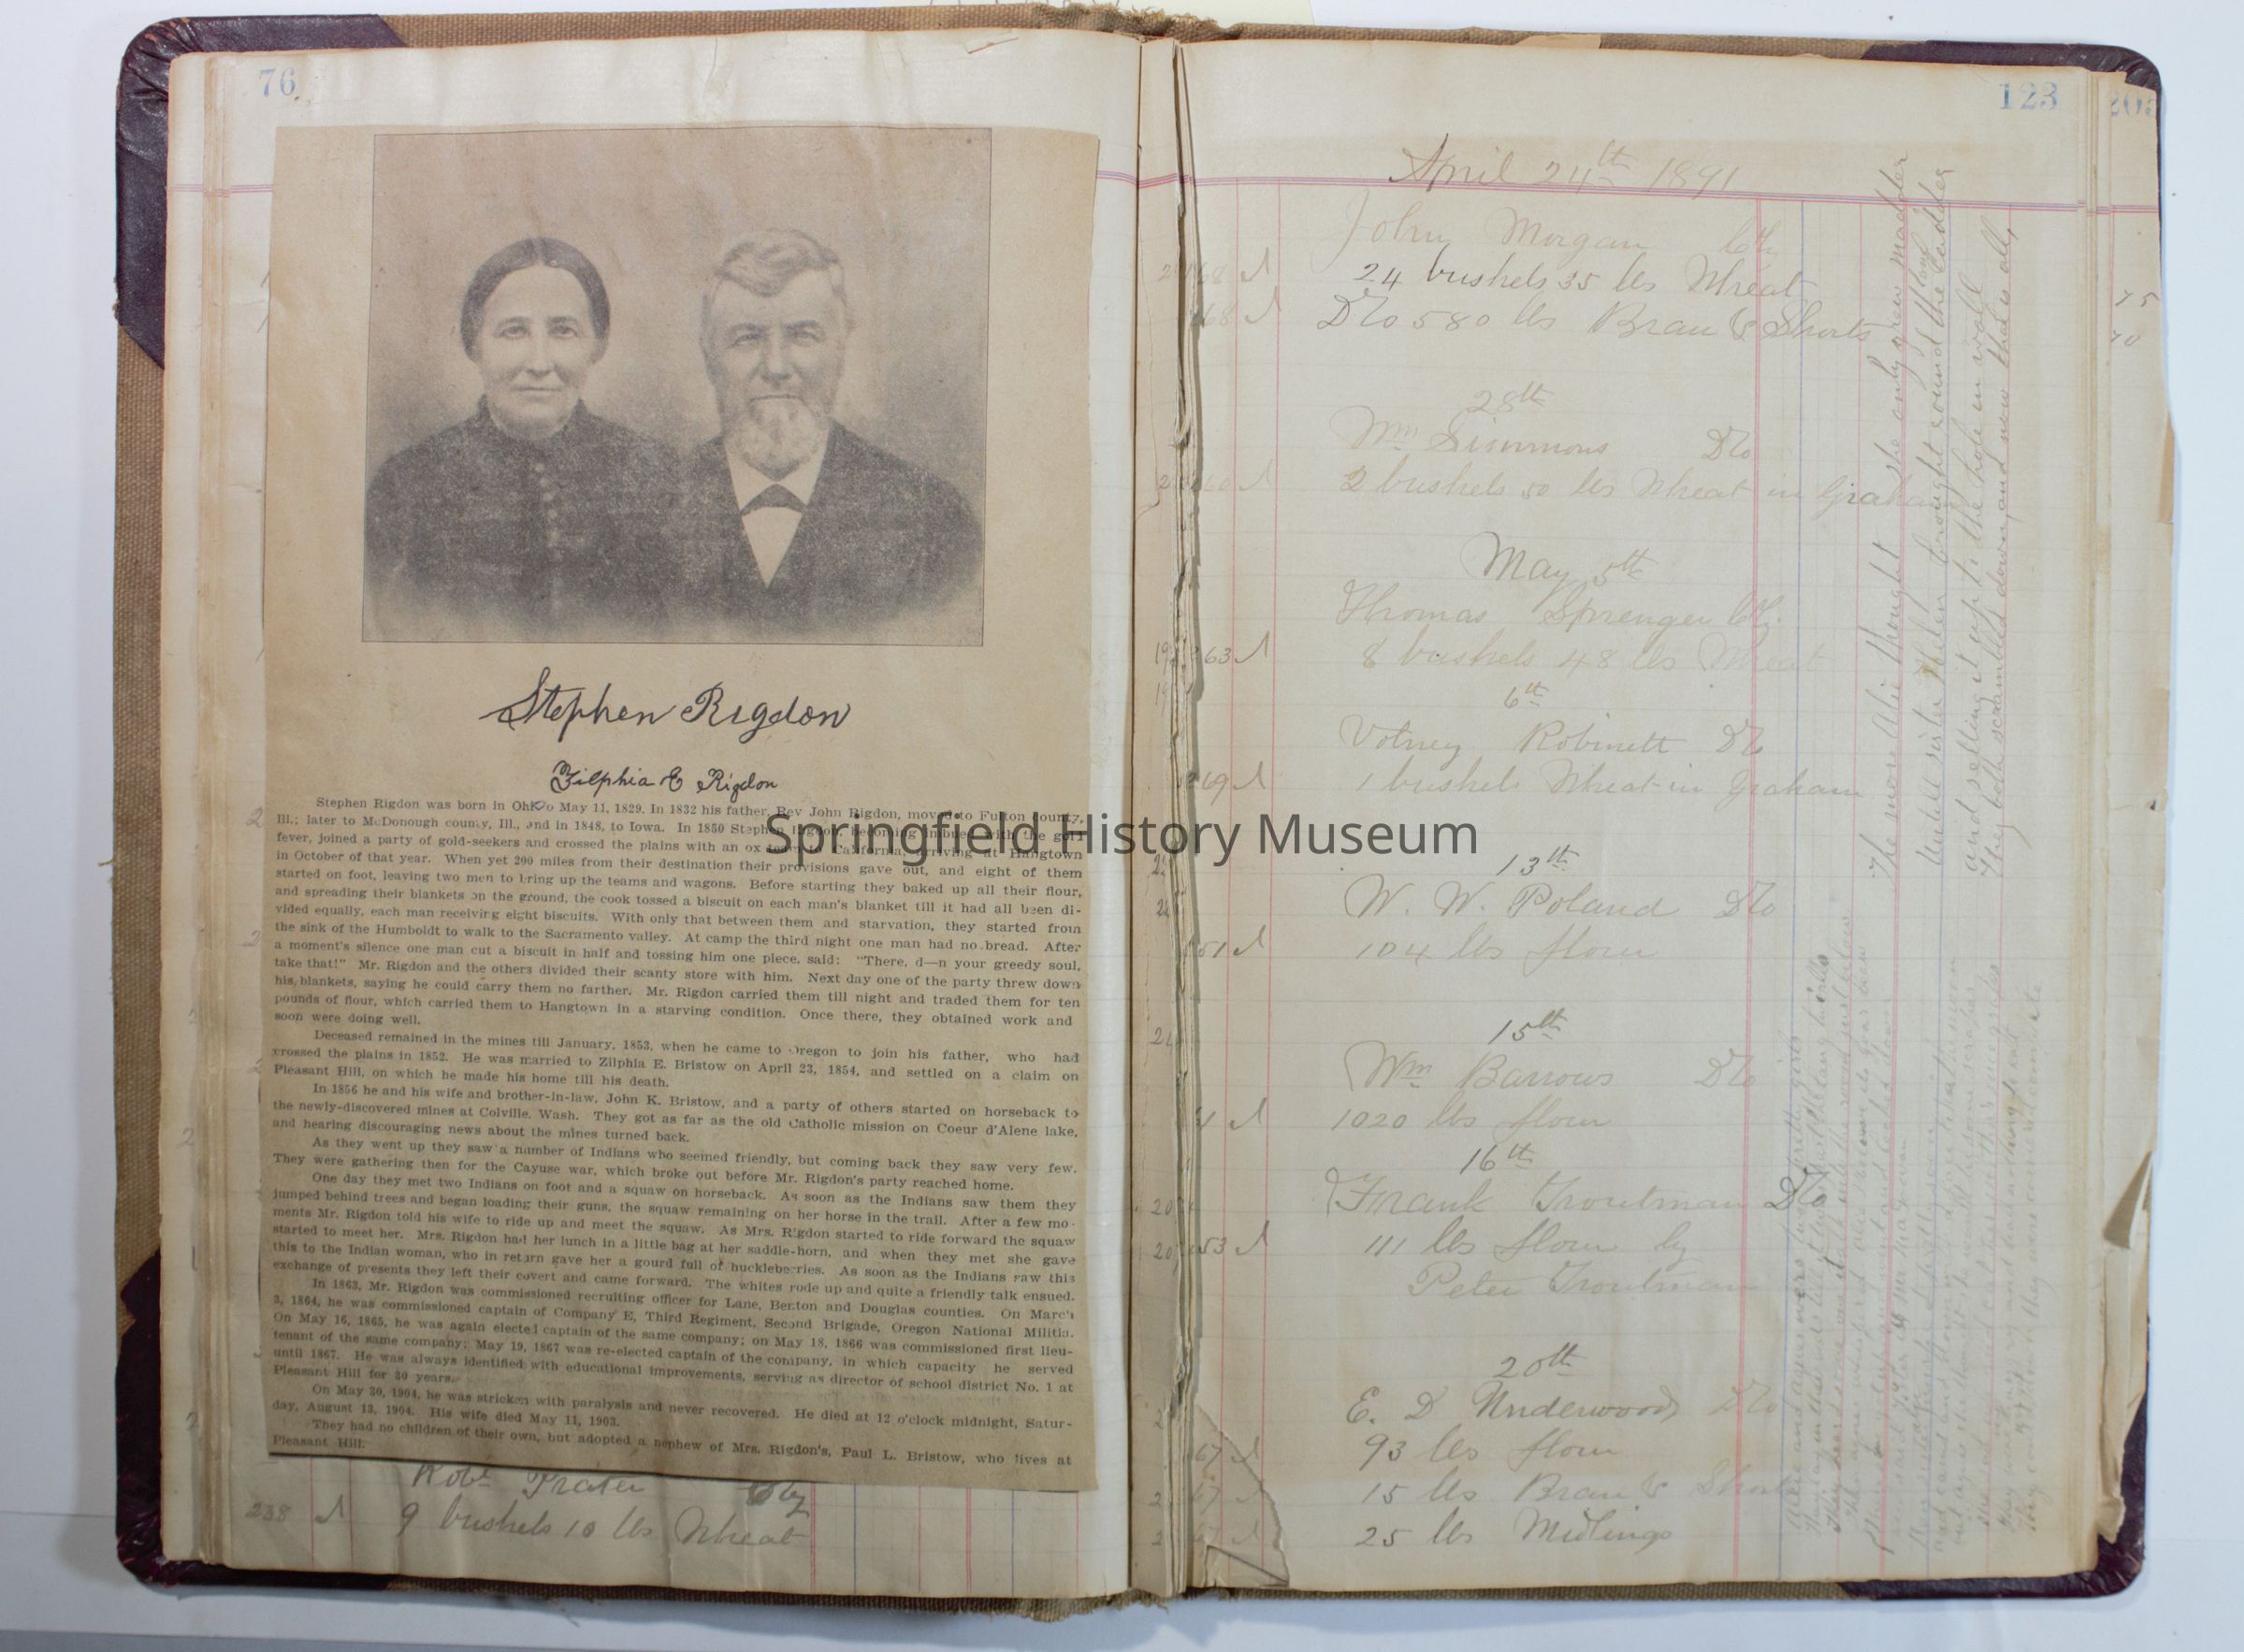 76
Stephen Rigdon
Zilphia E Rigdon
Stephen Rigdon was born in Ohio May 11, 1829. In 1832 his father, Rev John Rigdon, moved to Fulton county,
Ill.; later to McDonough county, Ill., and in 1848, to Iowa. In 1850 Stephen Rigdon, becoming imbued with the gold
fever, joined a party of gold-seekers and crossed the plains with an ox California, arriving at Hangtown
in October of that year. When yet 200 miles from their destination their provisions gave out, and eight of them
started on foot, leaving two men to bring up the teams and wagons. Before starting they baked up all their flour,
and spreading their blankets on the ground, the cook tossed a biscuit on each man's blanket till it had all been di-
vided equally, each man receiving eight biscuits. With only that between them and starvation, they started from
the sink of the Humboldt to walk to the Sacramento valley. At camp the third night one man had no bread. After
a moment's silence one man cut a biscuit in half and tossing him one piece, said: "There, d—n your greedy soul,
take that!" Mr. Rigdon and the others divided their scanty store with him. Next day one of the party threw down
his blankets, saying he could carry them no farther. Mr. Rigdon carried them till night and traded them for ten
pounds of flour, which carried them to Hangtown in a starving condition. Once there, they obtained work and
soon were doing well.
Deceased remained in the mines till January, 1853, when he came to Oregon to join his father, who had
crossed the plains in 1852. He was married to Zilphia E. Bristow on April 23, 1854, and settled on a claim on
Pleasant Hill, on which he made his home till his death.
In 1856 he and his wife and brother-in-law, John K. Bristow, and a party of others started on horseback to
the newly-discovered mines at Colville, Wash. They got as far as the old Catholic mission on Coeur d'Alene lake,
and hearing discouraging news about the mines turned back.
As they went up they saw a number of Indians who seemed friendly, but coming back they saw very few.
They were gathering then for the Cayuse war, which broke out before Mr. Rigdon's party reached home.
One day they met two Indians on foot and a squaw on horseback. As soon as the Indians saw them they
jumped behind trees and began loading their guns, the squaw remaining on her horse in the trail. After a few mo-
ments Mr. Rigdon told his wife to ride up and meet the squaw. As Mrs. Rigdon started to ride forward the squaw
started to meet her. Mrs. Rigdon had her lunch in a little bag at her saddle-horn, and when they met she gave
this to the Indian woman, who in return gave her a gourd full of huckleberries. As soon as the Indians saw this
exchange of presents they left their covert and came forward. The whites rode up and quite a friendly talk ensued.
In 1863, Mr. Rigdon was commissioned recruiting officer for Lane, Benton and Douglas counties. On March
3, 1864, he was commissioned captain of Company E, Third Regiment, Second Brigade, Oregon National Militia.
On May 16, 1865, he was again elected captain of the same company; on May 18, 1866 was commissioned first lieu-
tenant of the same company; May 19, 1867 was re-elected captain of the company, in which capacity he served
until 1867. He was always identified with educational improvements, serving as director of school district No. 1 at
Pleasant Hill for 30 years.
On May 30, 1904, he was stricken with paralysis and never recovered. He died at 12 o'clock midnight, Satur-
day, August 13, 1904. His wife died May 11, 1903.
They had no children of their own, but adopted a nephew of Mrs. Rigdon's, Paul L. Bristow, who lives at
Pleasant Hill.
Robt Frater
238 9 bushels 10 lbs Wheat
Springfield History Museum
123
April 24th 1891
John Morgan
24 bushels 35 lbs Wheat
Dto 580 lbs Bran & Shorts
28th
Wm Simmons Dto
2 bushels 50 lbs Wheat in Graham
May 5th
Thomas Sprenger
63 8 bushels 48 lbs Wheat
6th
Votney Robinett Dto
69 1 bushel Wheat in Graham
13th
W. W. Poland Dto
51 104 lbs flour
15th
Wm Barrows Dto
1020 lbs flour
16th
Frank Troutman Dto
53 111 lbs flour by
Peter Troutman
20th
E. D Underwood Dto
67 93 lbs flour
67 15 lbs Bran & Shorts
67 25 lbs Midlings
The more Alie thought she only grew madder
Until sister Helen brought round the ladder
and setting it up to the hole in wall
They both scrambled down, and now that is all,